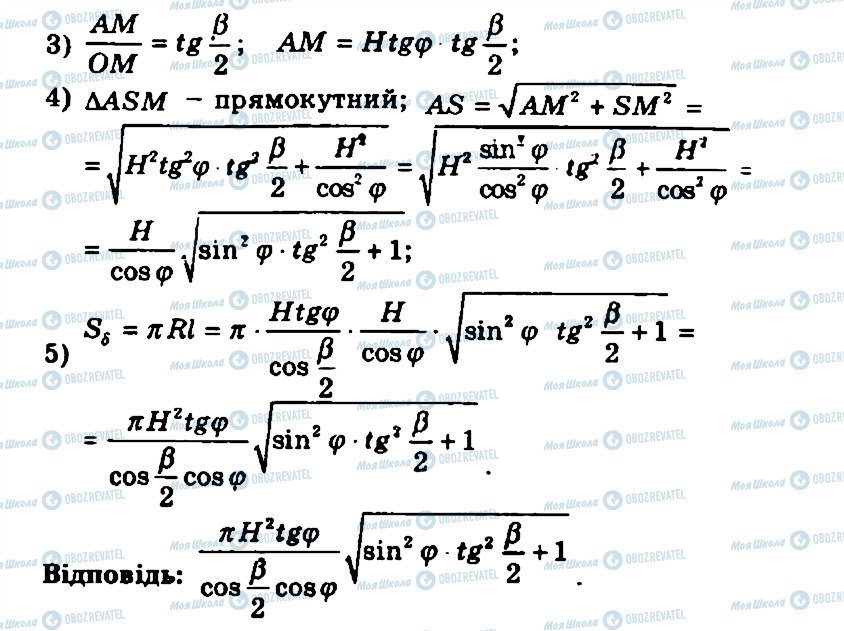 3) AM/OM = tg β/2; AM = Htgφ · tg β/2;
4) ΔASM – прямокутний; AS = √(AM² + SM²) =
= √(H²tg²φ · tg² β/2 + H²/cos² φ) = √(H² sin² φ/cos² φ · tg² β/2 + H²/cos² φ) =
= H/cos φ · √(sin² φ · tg² β/2 + 1);
5) S_δ = πRl = π · Htgφ/cos β/2 · H/cos φ · √(sin² φ tg² β/2 + 1) =
= πH²tgφ/(cos β/2 cos φ) √(sin² φ · tg² β/2 + 1).
Відповідь: πH²tgφ/(cos β/2 cos φ) √(sin² φ · tg² β/2 + 1).